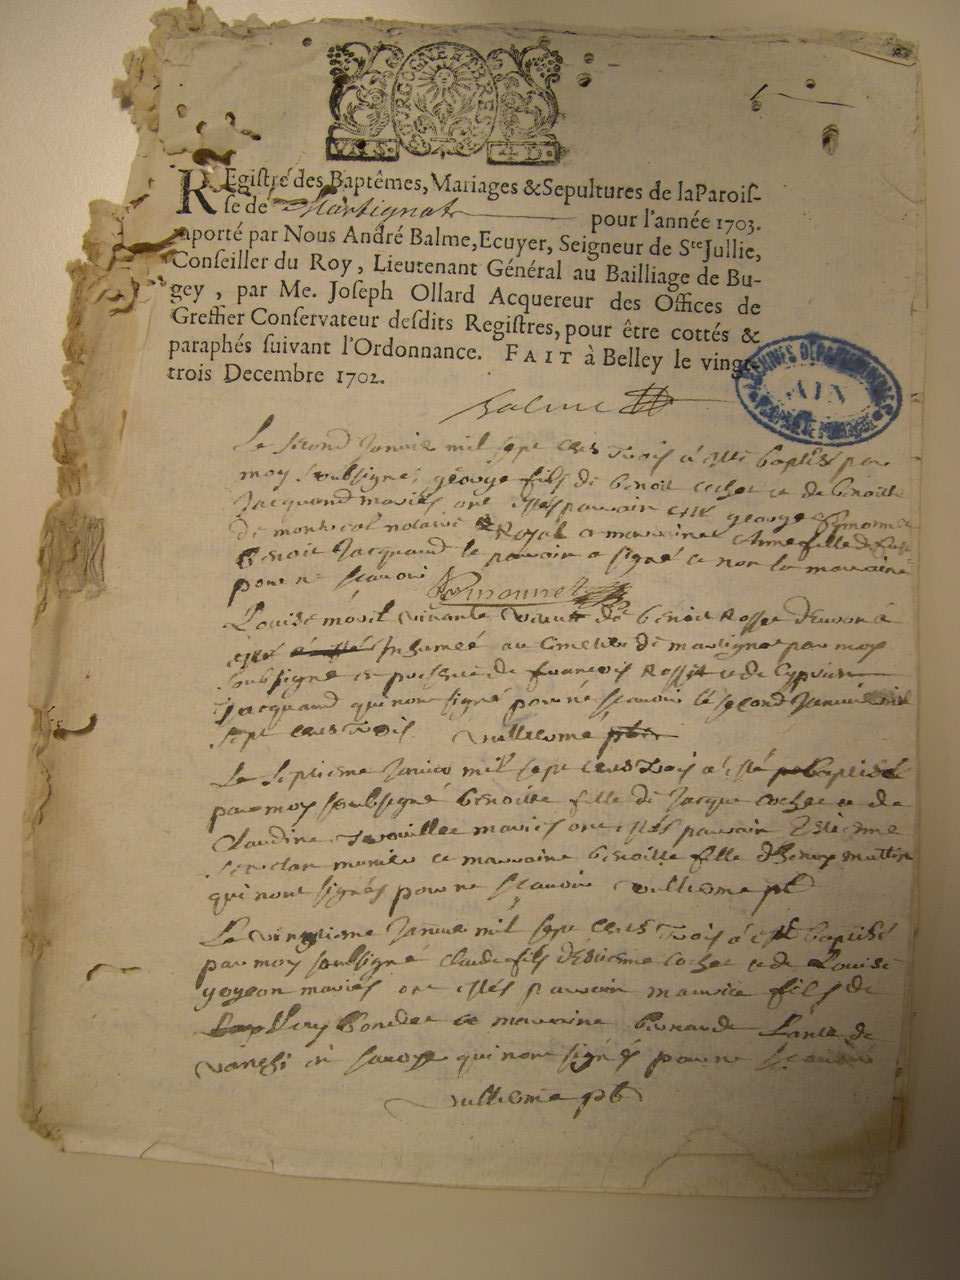 BOURGOGNE & BRESSE
VN S. 4 D.
REgistré des Baptêmes, Mariages & Sepultures de la Parois-
se de Martignat pour l'année 1703.
aporté par Nous André Balme, Ecuyer, Seigneur de Ste Jullie,
Conseiller du Roy, Lieutenant Général au Bailliage de Bu-
gey, par Me. Joseph Ollard Acquereur des Offices de
Greffier Conservateur desdits Registres, pour être cottés &
paraphés suivant l'Ordonnance. FAIT à Belley le vingt-
trois Decembre 1702.
ARCHIVES DEPARTEMENTALES
AIN
Balme
Le second Janvier mil sept cens trois a esté baptisé par
moy soubsigné, george fils de benoit cochet et de benoitte
Jacquand mariés ont estés parrain Mr george
de montreal notaire Royal et marraine Anne fille de
benoit Jacquand le parrain a signé et non la marraine
pour ne scavoir
Louise morel vivante vieufve de benoit Rosset a
esté inhumée au cimetiere de martignat par moy
soubsigné en presence de francois Rosset et de Cyprien
Jacquand qui nont signé pour ne scavoir le second Janvier mil
sept cens trois vuillerme pbre
Le septieme Janvier mil sept cens trois a esté baptisée
par moy soubsigné benoitte fille de Jacque cochet et de
Claudine mariés ont estés parrain Estienne
et marraine benoitte fille
qui nont signés pour ne scavoir vuillerme pb
Le vingtieme Janvier mil sept cens trois a esté baptisé
par moy soubsigné claude fils d'Estienne cochet et de Louise
goyeon mariés ont estés parrain maurice fils de
et marraine bernarde de
en savoye qui nont signés pour ne scavoir
vuillerme pb